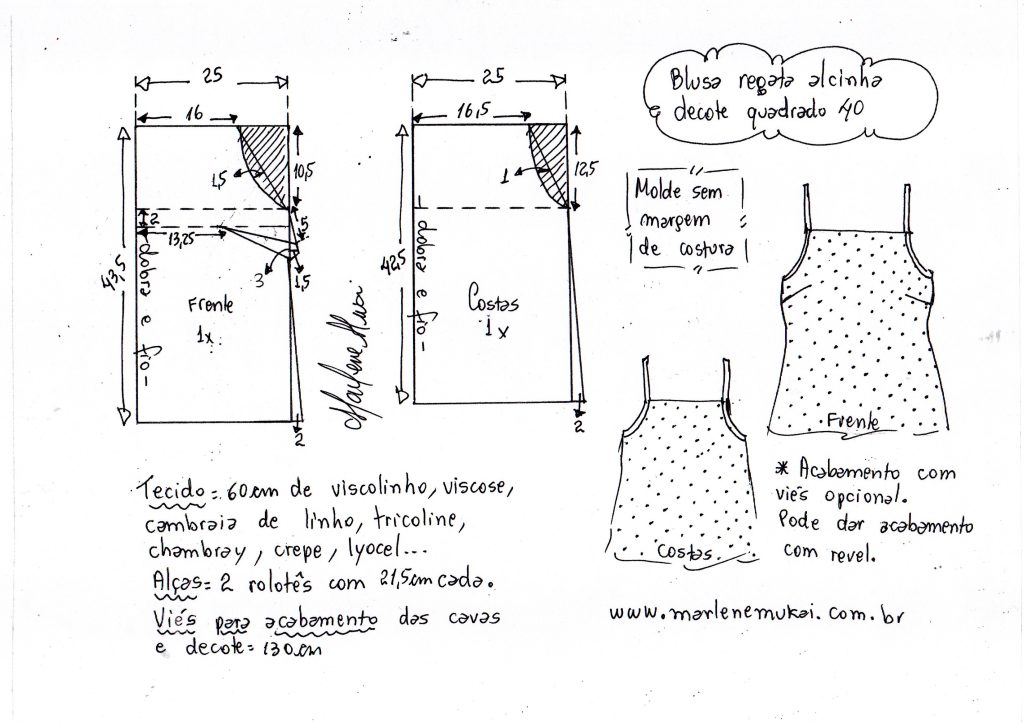 25
16
10,5
1,5
2
13,25
5
3
1,5
43,5
dobra e fio-
Frente
1x
2
Marlene Mukai
25
16,5
12,5
1
42,5
dobra e fio-
Costas
1x
2
Blusa regata alcinha
e decote quadrado 40
Molde sem
margem
de costura
Frente
Costas
* Acabamento com
viés opcional.
Pode dar acabamento
com revel.
www.marlenemukai.com.br
Tecido = 60cm de viscolinho, viscose,
cambraia de linho, tricoline,
chambray, crepe, lyocel...
Alças = 2 rolotês com 21,5cm cada.
Viés para acabamento das cavas
e decote = 130cm